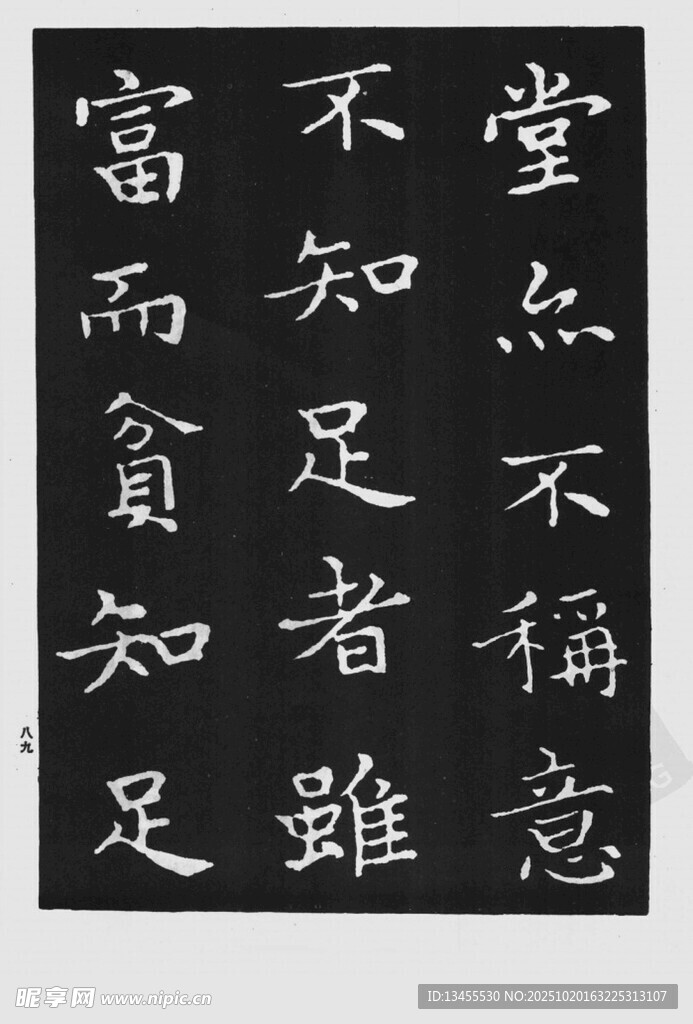 堂亦不稱意
不知足者雖
富而貧知足
八九
昵享网 www.nipic.cn
ID:13455530 NO:20251020163225313107